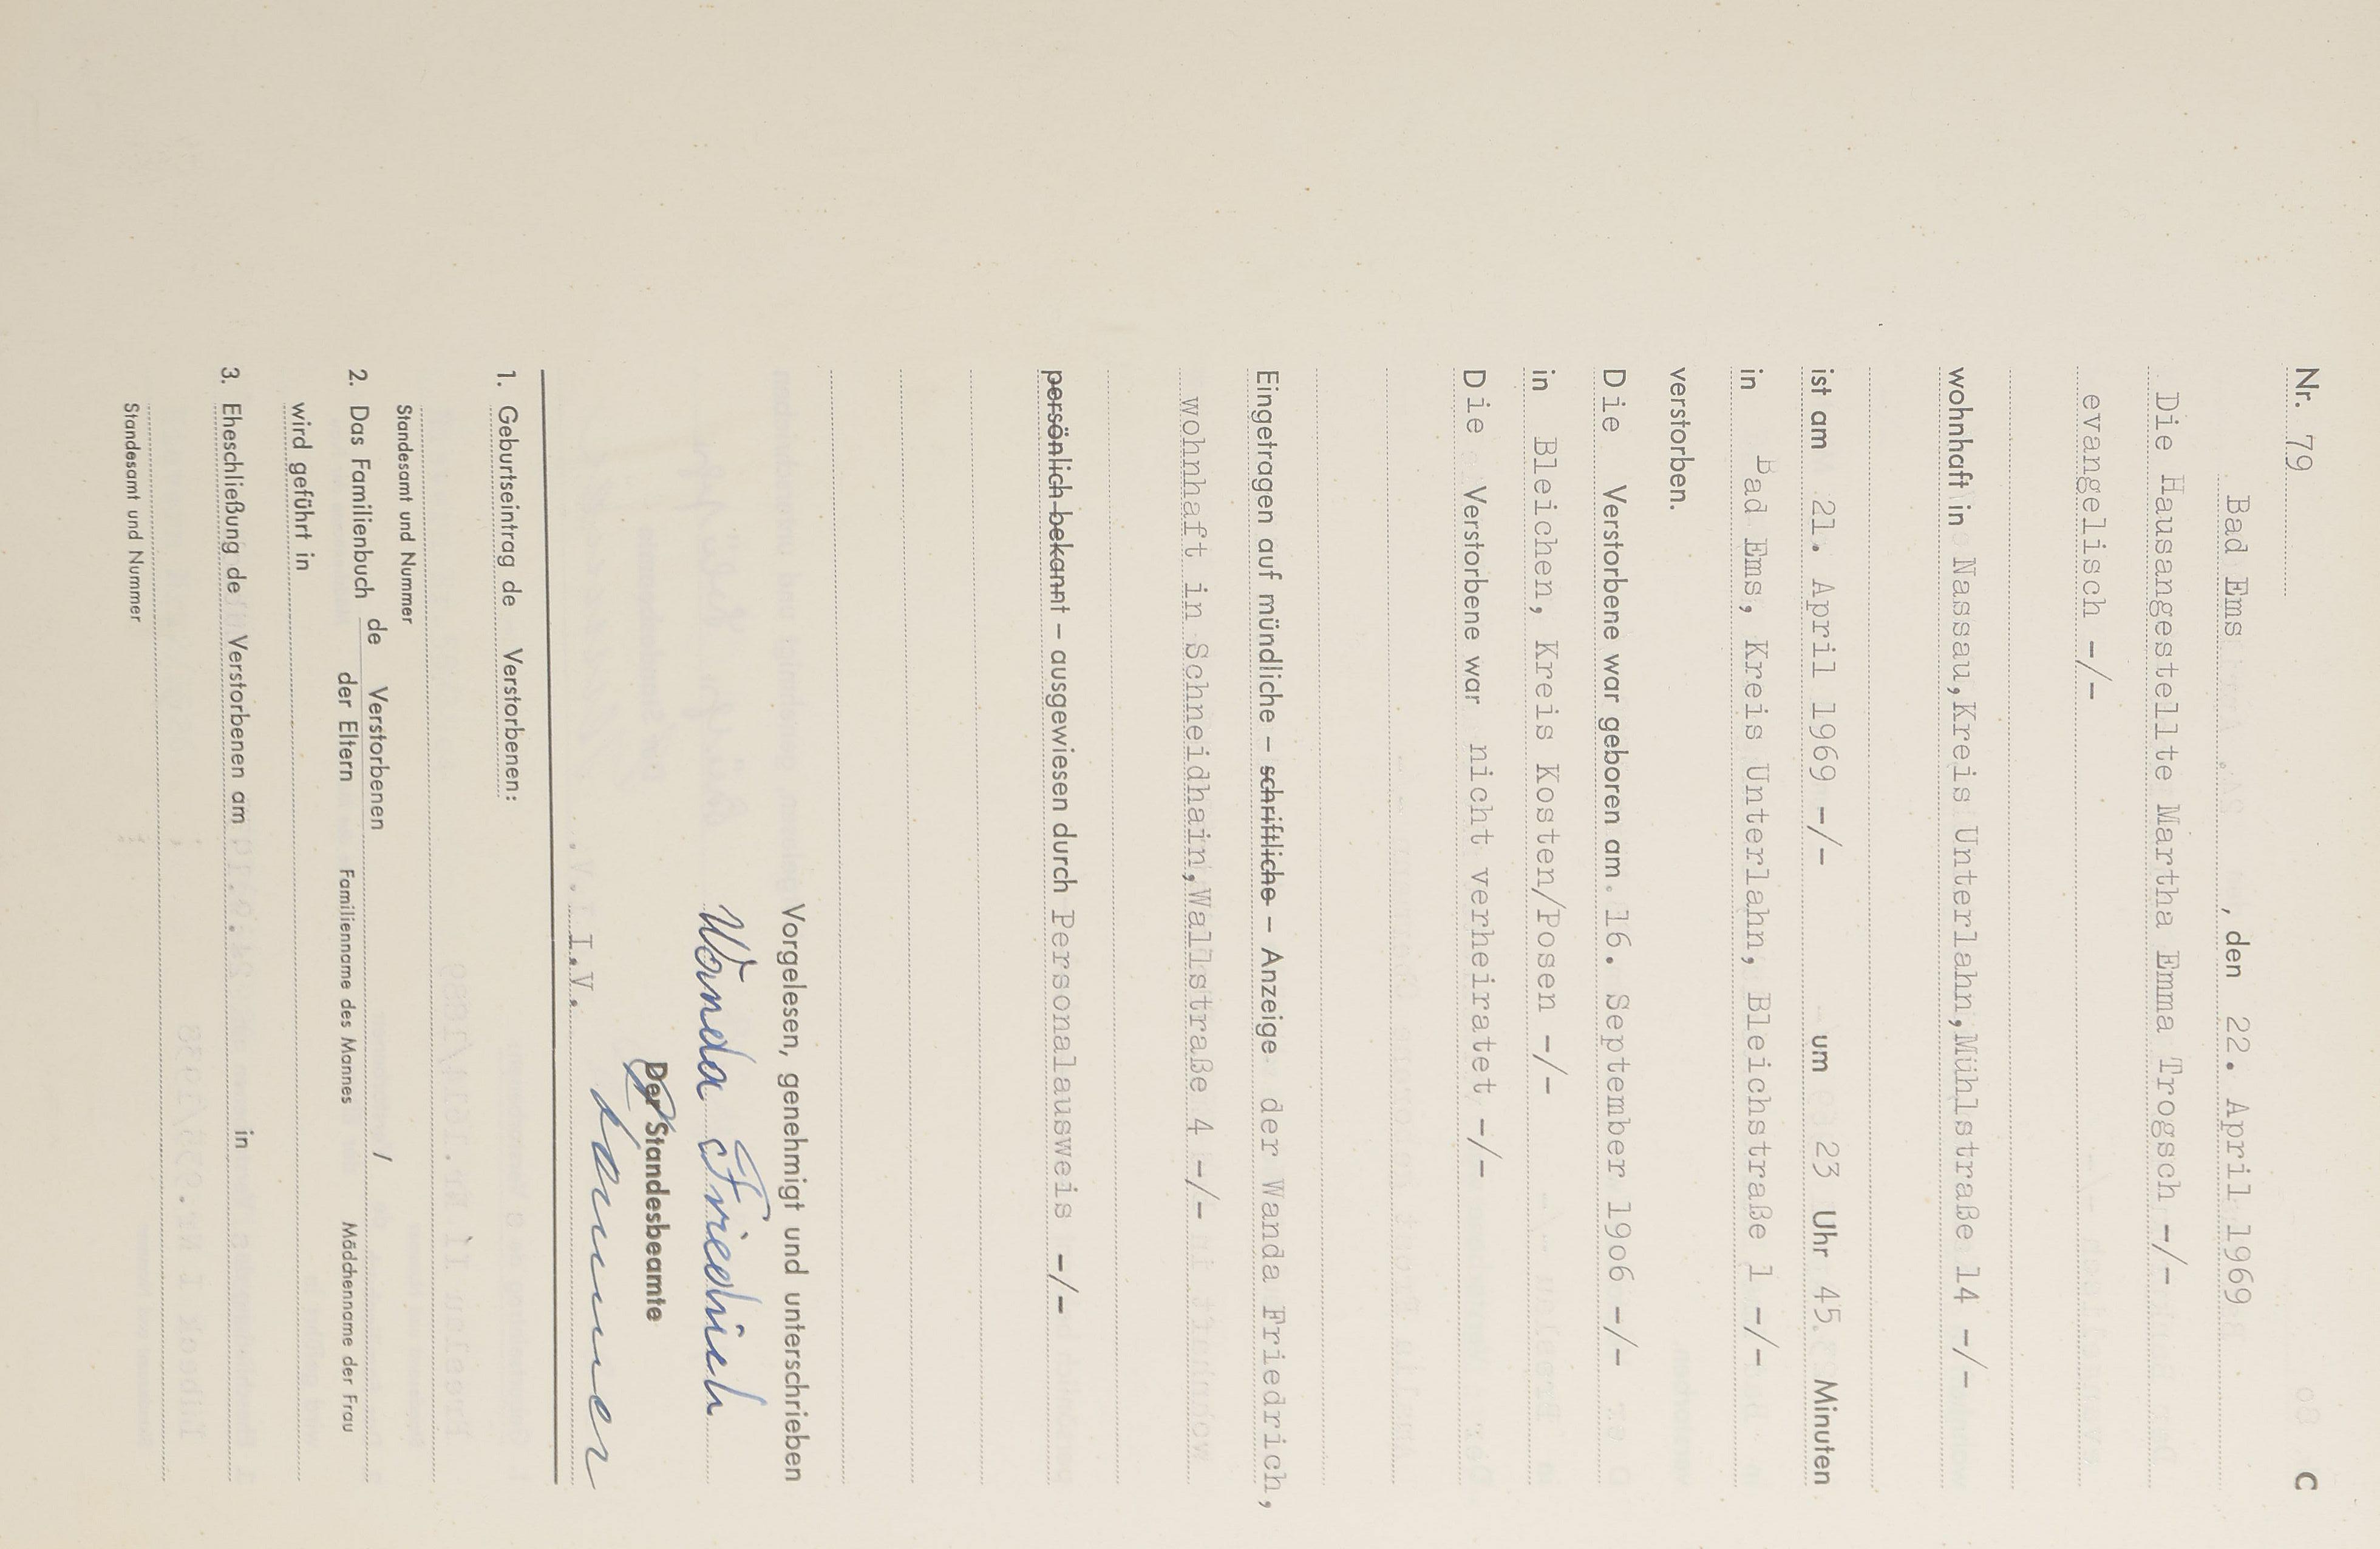 Nr. 79 C
Bad Ems, den 22. April 1969
Die Hausangestellte Martha Emma Trogsch -/-
evangelisch -/-
wohnhaft in Nassau,Kreis Unterlahn,Mühlstraße 14 -/-
ist am 21. April 1969 -/- um 23 Uhr 45 Minuten
in Bad Ems, Kreis Unterlahn, Bleichstraße 1 -/-
verstorben.
Die Verstorbene war geboren am 16. September 19o6 -/-
in Bleichen, Kreis Kosten/Posen -/-
Die Verstorbene war nicht verheiratet -/-
Eingetragen auf mündliche – schriftliche – Anzeige der Wanda Friedrich,
wohnhaft in Schneidhain,Wallstraße 4 -/-
persönlich bekannt – ausgewiesen durch Personalausweis -/-
Vorgelesen, genehmigt und unterschrieben
Wanda Friedrich
Der Standesbeamte
I.V.
1. Geburtseintrag de Verstorbenen:
Standesamt und Nummer
2. Das Familienbuch de Verstorbenen /
der Eltern Familienname des Mannes Mädchenname der Frau
wird geführt in
3. Eheschließung de Verstorbenen am in
Standesamt und Nummer